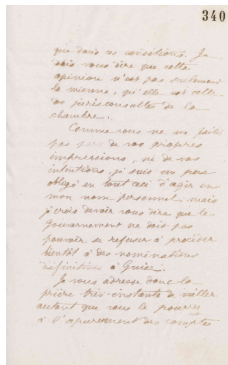 340
que dans ses convictions. Je
dois vous dire que cette
opinion n'est pas seulement
la mienne, qu'elle est celle
des jurisconsultes de la
chambre.
Comme vous ne me faites
pas part de vos propres
impressions, ni de vos
intentions, je suis un peu
obligé en tout ceci d'agir en
mon nom personnel. mais
je crois devoir vous dire que le
gouvernement ne doit pas
pouvoir se refuser à procéder
bientôt à des nominations
définitives à Guise.
Je vous adresse donc la
prière très-instante de veiller
autant que vous le pourrez
à l'apurement des comptes